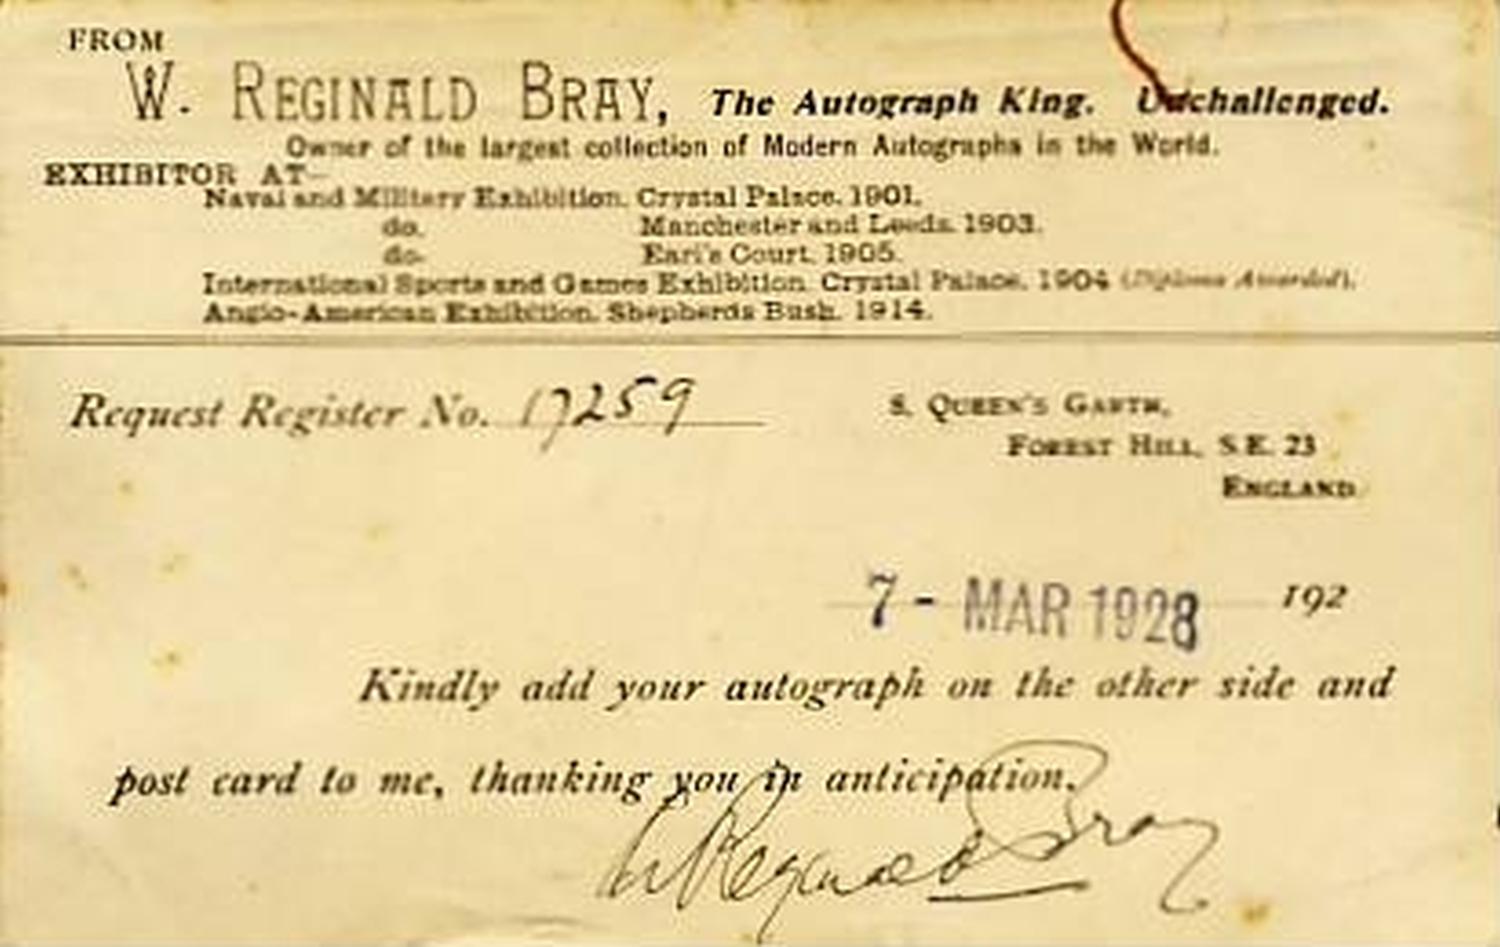 FROM
W. REGINALD BRAY, The Autograph King. Unchallenged.
Owner of the largest collection of Modern Autographs in the World.
EXHIBITOR AT—
Naval and Military Exhibition, Crystal Palace, 1901.
do. Manchester and Leeds, 1903.
do. Earl's Court, 1905.
International Sports and Games Exhibition, Crystal Palace, 1904 (Diploma Awarded).
Anglo-American Exhibition, Shepherds Bush, 1914.
Request Register No. 17259
8, QUEEN'S GARTH,
FOREST HILL, S.E. 23
ENGLAND
7 - MAR 1928 192
Kindly add your autograph on the other side and
post card to me, thanking you in anticipation.
W Reginald Bray